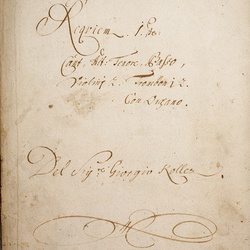 Requiem. 1. Ato.
Cant, Alt: Tenore, Basso,
Violini 2. Tromboni 2.
Con Organo.
Del Sigre Giorgio Roller.